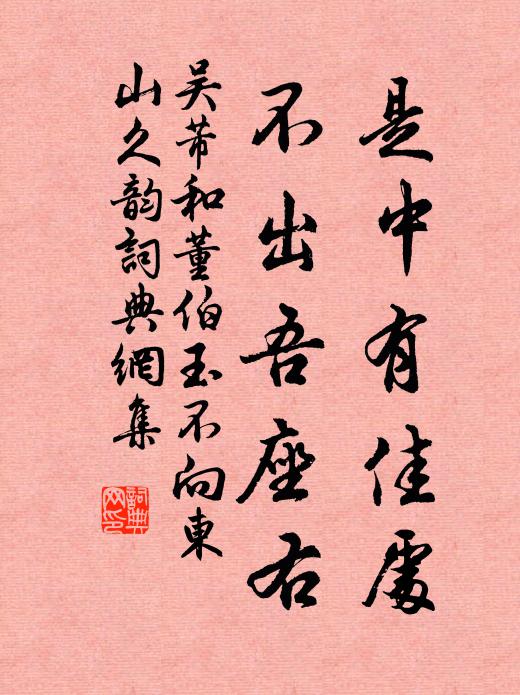 是中有佳處
不出吾座右
吴芾和董伯玉不向東
山久韵詞典網集
詞典网印